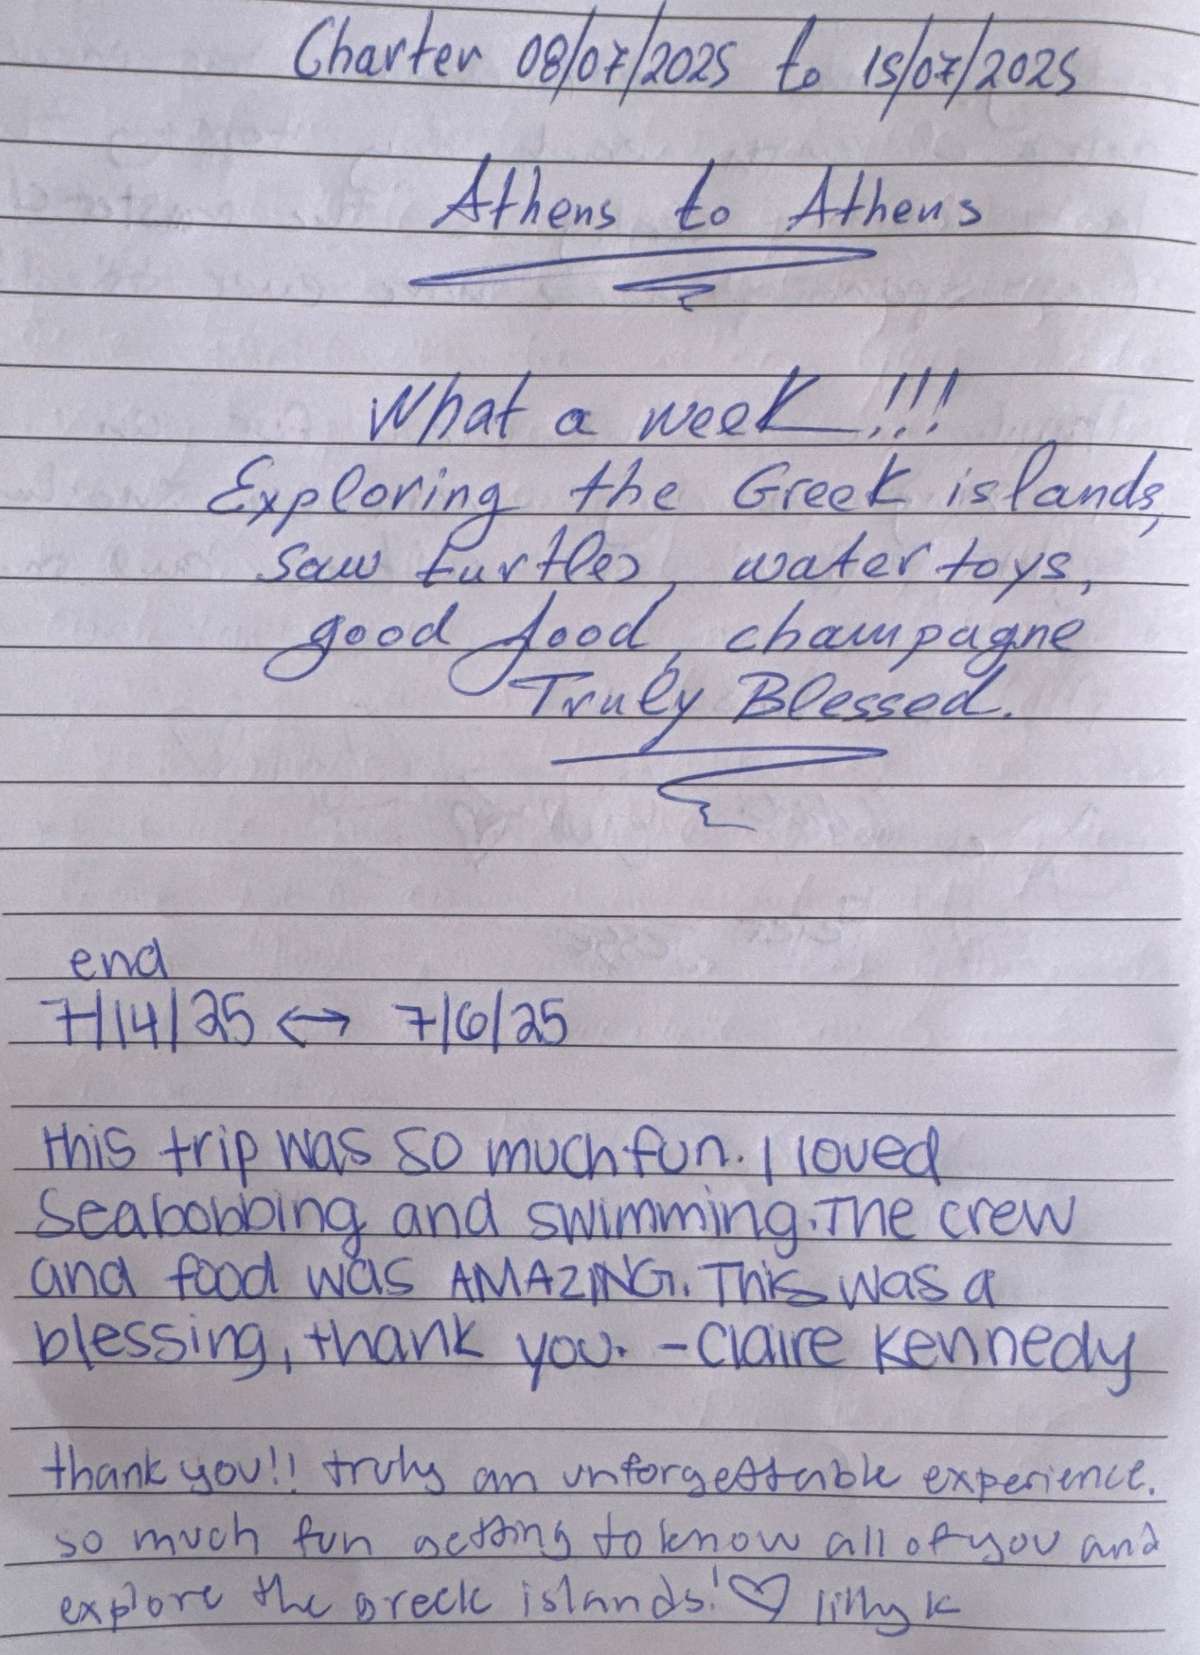 Charter 08/07/2025 to 15/07/2025
Athens to Athens
What a week!!!
Exploring the Greek islands,
saw turtles, water toys,
good food, champagne
Truly Blessed.
end
7/14/25 ↔ 7/6/25
this trip was so much fun. I loved
seabobbing and swimming. The crew
and food was AMAZING. This was a
blessing, thank you. - Claire Kennedy
thank you!! truly an unforgettable experience.
so much fun getting to know all of you and
explore the greek islands! ♡ lilly k